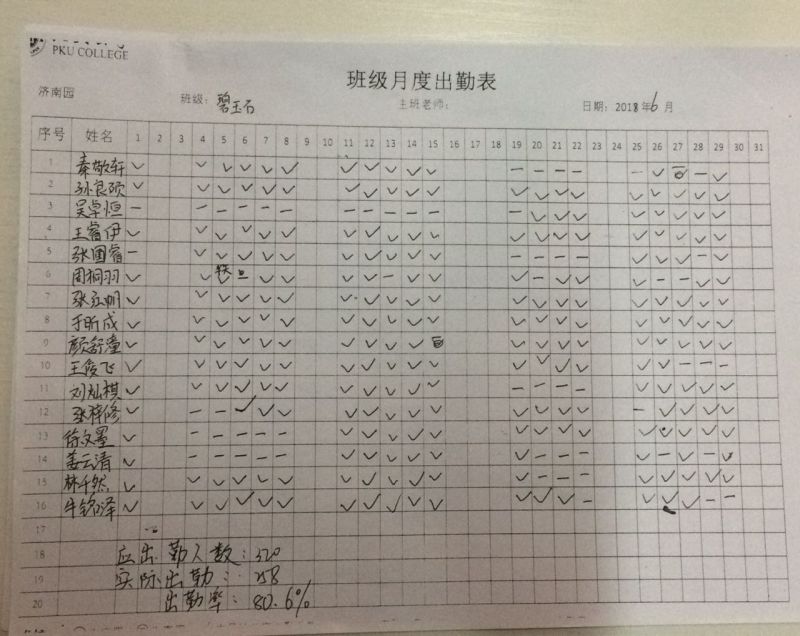 PKU COLLEGE
班级月度出勤表
济南园 班级: 碧玉石 主班老师: 日期: 2018年6月
序号 姓名 1 2 3 4 5 6 7 8 9 10 11 12 13 14 15 16 17 18 19 20 21 22 23 24 25 26 27 28 29 30 31
1 秦敬轩 ✓ ✓ ✓ ✓ ✓ ✓ ✓ ✓ ✓ ✓ ✓ — — — — — ✓ ✓ ✓
2 孙良硕 ✓ ✓ ✓ ✓ ✓ ✓ ✓ ✓ ✓ ✓ ✓ ✓ ✓ ✓ ✓ ✓ ✓ ✓ ✓ ✓
3 吴卓恒 — — — — — — — — — — — — ✓ ✓ ✓ ✓ ✓ ✓ ✓ ✓
4 王睿伊 ✓ ✓ ✓ ✓ ✓ ✓ ✓ ✓ ✓ ✓ ✓ ✓ ✓ ✓ ✓ ✓ ✓ ✓ ✓ ✓
5 张圃睿 — ✓ ✓ ✓ ✓ ✓ ✓ ✓ ✓ ✓ ✓ ✓ ✓ ✓ — — — ✓ — —
6 周桐羽 ✓ ✓ ✓ ✓ ✓ ✓ ✓ — ✓ ✓ ✓ — ✓ ✓ — — ✓ ✓ ✓
7 张弘帆 ✓ ✓ ✓ ✓ ✓ ✓ ✓ ✓ ✓ ✓ ✓ ✓ ✓ ✓ ✓ ✓ ✓ ✓ ✓ ✓
8 于昕成 ✓ ✓ ✓ ✓ ✓ ✓ ✓ ✓ ✓ ✓ ✓ ✓ ✓ ✓ ✓ ✓ ✓ ✓ ✓ ✓
9 颜舒潼 ✓ ✓ ✓ ✓ ✓ ✓ ✓ ✓ ✓ ✓ ✓ ✓ ✓ ✓ ✓ ✓ ✓ ✓ ✓
10 王俊飞 ✓ ✓ ✓ ✓ ✓ ✓ ✓ ✓ ✓ ✓ ✓ ✓ ✓ ✓ ✓ ✓ ✓ — — —
11 刘灿祺 ✓ ✓ ✓ ✓ ✓ ✓ ✓ ✓ ✓ ✓ ✓ — — — — ✓ ✓ ✓ ✓ ✓
12 张梓修 ✓ — — ✓ ✓ ✓ ✓ ✓ ✓ ✓ ✓ ✓ ✓ ✓ ✓ — ✓ ✓ ✓ ✓
13 徐文墨 ✓ — — — — — ✓ ✓ ✓ ✓ ✓ ✓ ✓ ✓ ✓ ✓ ✓ ✓ ✓ ✓
14 姜云清 ✓ — — — — — ✓ ✓ ✓ ✓ ✓ ✓ — — — ✓ — ✓ — ✓
15 林千然 ✓ ✓ ✓ ✓ ✓ ✓ ✓ ✓ ✓ ✓ ✓ ✓ — — — ✓ ✓ ✓ ✓ ✓
16 牛铭泽 ✓ ✓ ✓ ✓ ✓ ✓ ✓ ✓ ✓ ✓ ✓ ✓ ✓ ✓ — ✓ ✓ ✓ — —
17
18 应出勤人数: 320
19 实际出勤: 258
20 出勤率: 80.6%